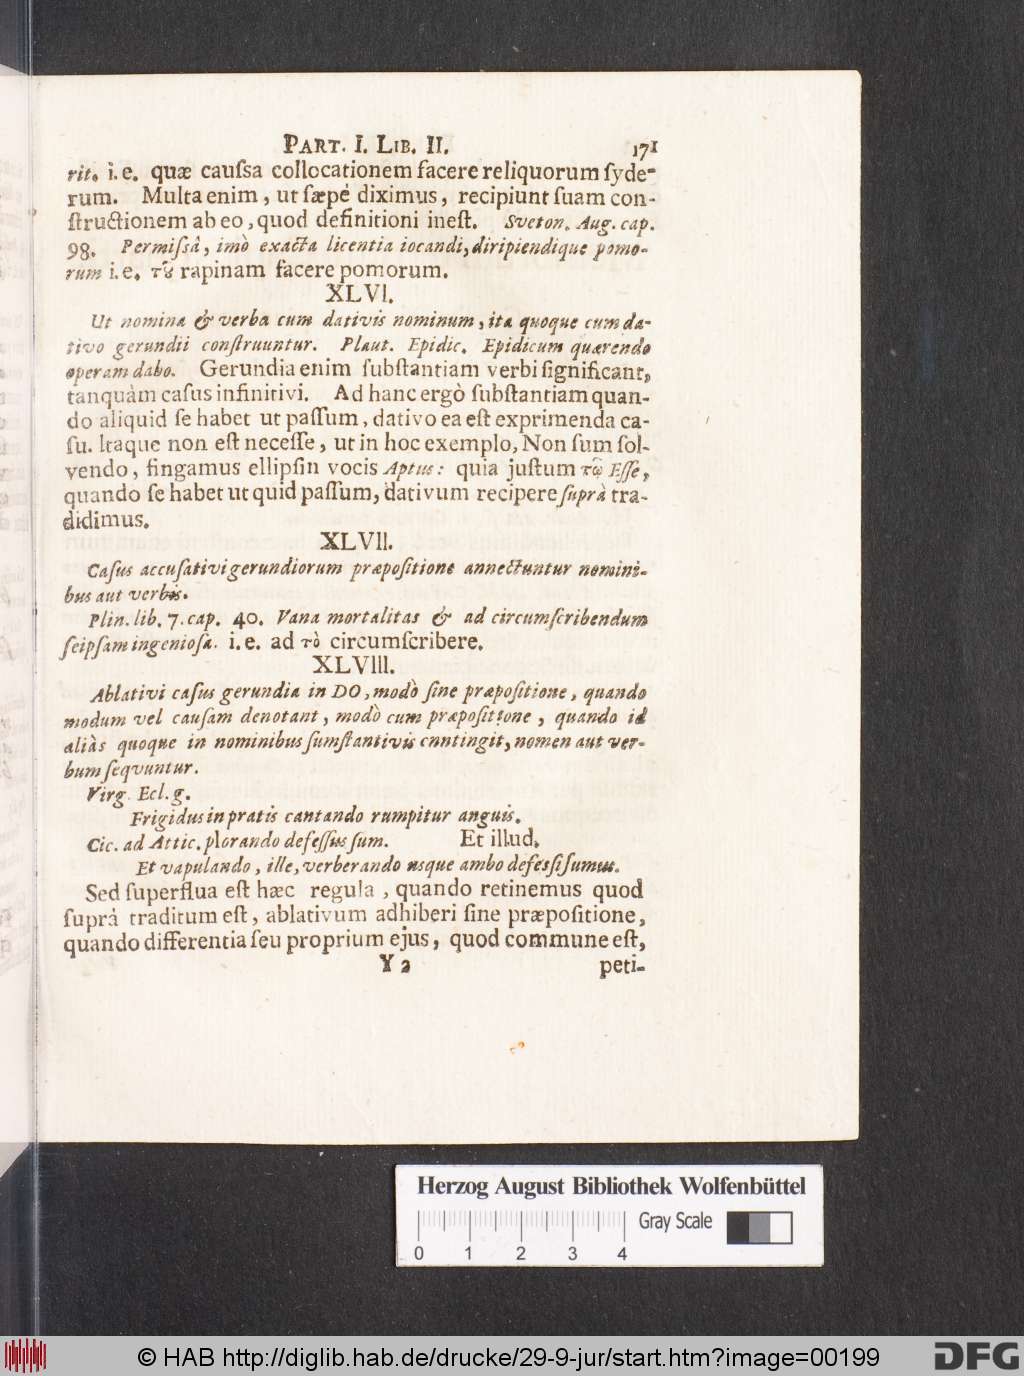 PART. I. LIB. II. 171
rit. i.e. quæ cauſsa collocationem facere reliquorum ſyde-
rum. Multa enim, ut ſæpé diximus, recipiunt ſuam con-
ſtructionem ab eo, quod definitioni ineſt. Sveton. Aug. cap.
98. Permiſsâ, imò exacta licentia iocandi, diripiendique pomo-
rum i.e. τȣ͂ rapinam facere pomorum.
XLVI.
Ut nomina & verba cum dativis nominum, ita quoque cum da-
tivo gerundii conſtruuntur. Plaut. Epidic. Epidicum quærendo
operam dabo. Gerundia enim ſubſtantiam verbi ſignificant,
tanquàm caſus infinitivi. Ad hanc ergò ſubſtantiam quan-
do aliquid ſe habet ut paſſum, dativo ea eſt exprimenda ca-
ſu. Itaque non eſt neceſſe, ut in hoc exemplo, Non ſum ſol-
vendo, fingamus ellipſin vocis Aptus: quia juſtum τῶ Eſſe,
quando ſe habet ut quid paſſum, dativum recipere ſuprà tra-
didimus.
XLVII.
Caſus accuſativi gerundiorum præpoſitione annectuntur nomini-
bus aut verbis.
Plin. lib. 7. cap. 40. Vana mortalitas & ad circumſcribendum
ſeipſam ingenioſa. i.e. ad τὸ circumſcribere.
XLVIII.
Ablativi caſus gerundia in DO, modò ſine præpoſitione, quando
modum vel cauſam denotant, modò cum præpoſitione, quando id
aliàs quoque in nominibus ſumſtantivis cnntingit, nomen aut ver-
bum ſeqvuntur.
Virg. Ecl. g.
Frigidus in pratis cantando rumpitur anguis.
Cic. ad Attic. plorando defeſſus ſum. Et illud.
Et vapulando, ille, verberando usque ambo defesſi ſumus.
Sed ſuperflua eſt hæc regula, quando retinemus quod
ſuprá traditum eſt, ablativum adhiberi ſine præpoſitione,
quando differentia ſeu proprium ejus, quod commune eſt,
Y 2 peti-
Herzog August Bibliothek Wolfenbüttel
Gray Scale
0 1 2 3 4
© HAB http://diglib.hab.de/drucke/29-9-jur/start.htm?image=00199
DFG